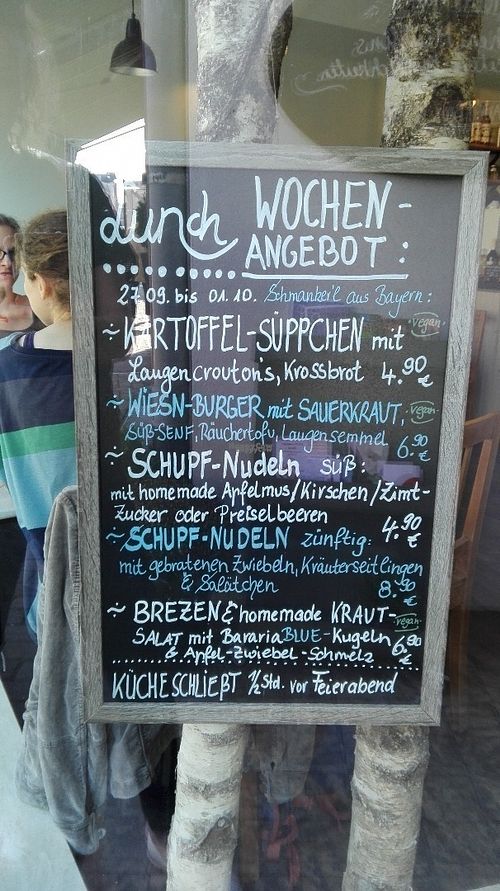 Lunch WOCHEN-
ANGEBOT:
27.09. bis 01.10. Schmankerl aus Bayern:
~ KARTOFFEL-SÜPPCHEN mit vegan
Laugencroutons, Krossbrot 4.90 €
~ WIESN-BURGER mit SAUERKRAUT, vegan
SÜß-SENF, Räuchertofu, Laugensemmel 6.90 €
~ SCHUPF-NUDELN SÜß:
mit homemade Apfelmus/Kirschen/Zimt-
Zucker oder Preiselbeeren 4.90 €
~ SCHUPF-NUDELN zünftig:
mit gebratenen Zwiebeln, Kräuterseitlingen
& Salätchen 8.90 €
~ BREZEN & homemade KRAUT- vegan
SALAT mit BavariaBLUE-Kugeln 6.90 €
& Apfel-Zwiebel-Schmelz
KÜCHE SCHLIEßT 1/2 Std. vor Feierabend